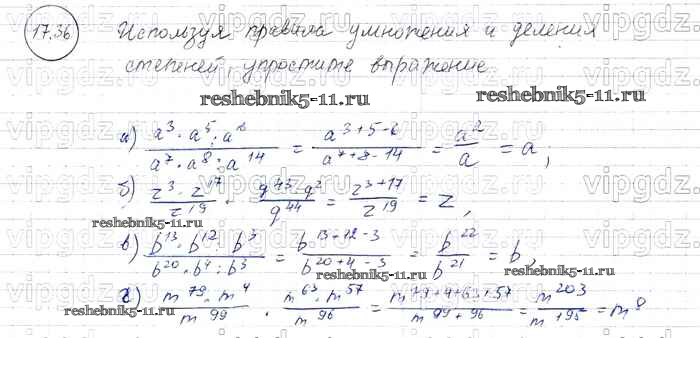 17.36 Используя правила умножения и деления
степеней, упростите выражение
reshebnik5-11.ru
reshebnik5-11.ru
а) a³ · a⁵ : a⁶ / a⁷ · a⁸ : a¹⁴ = a³⁺⁵⁻⁶ / a⁷⁺⁸⁻¹⁴ = a² / a = a;
б) z³ · z¹⁷ / z¹⁹ · q⁴³ · q² / q⁴⁴ = z³⁺¹⁷ / z¹⁹ = z,
reshebnik5-11.ru
в) b¹³ · b¹² : b³ / b²⁰ · b⁴ : b³ = b¹³⁺¹²⁻³ / b²⁰⁺⁴⁻³ = b²² / b²¹ = b,
reshebnik5-11.ru
reshebnik5-11.ru
г) m⁷⁹ · m⁴ / m⁹⁹ · m⁶³ · m⁵⁷ / m⁹⁶ = m⁷⁹⁺⁴⁺⁶³⁺⁵⁷ / m⁹⁹⁺⁹⁶ = m²⁰³ / m¹⁹⁵ = m⁸